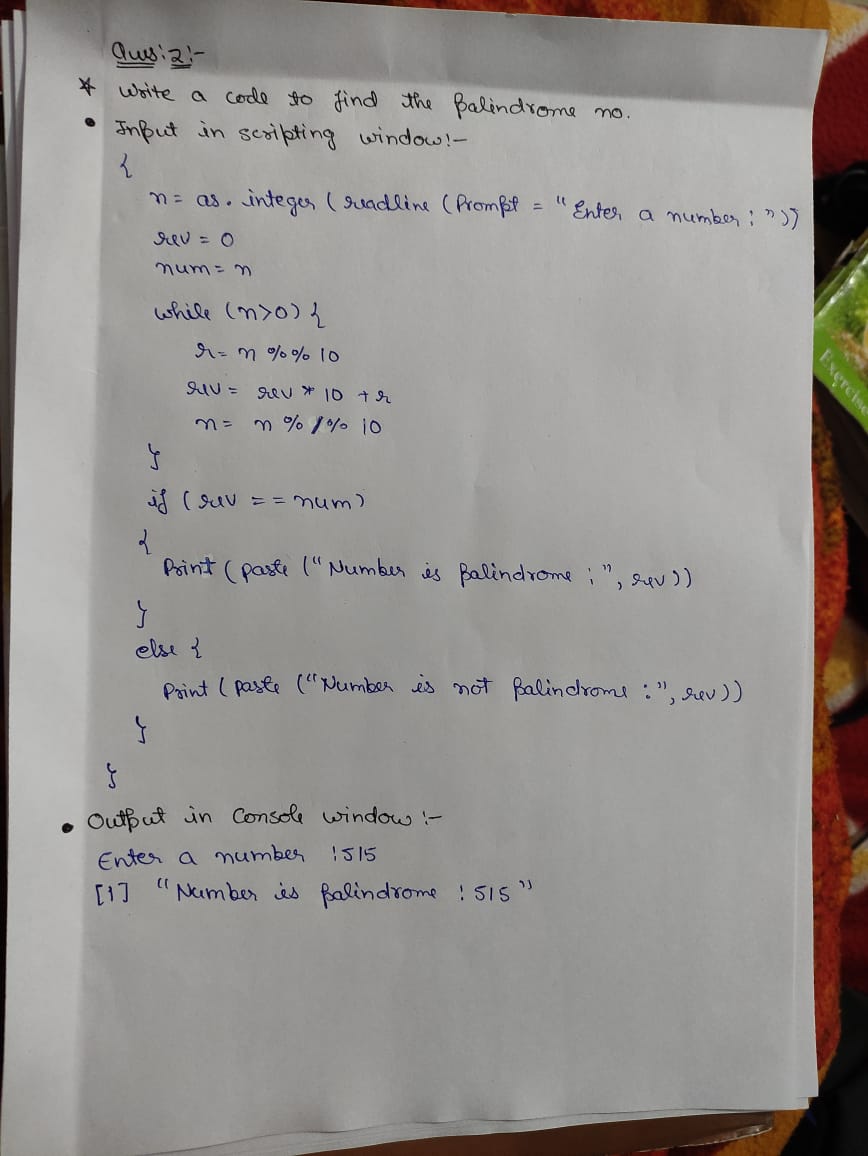 Ques:2:-
* Write a code to find the Palindrome no.
• Input in scripting window:-
{
n = as.integer (readline (Prompt = "Enter a number : "))
rev = 0
num = n
while (n>0) {
r = n %% 10
rev = rev * 10 + r
n = n %/% 10
}
if (rev == num)
{
Print (paste ("Number is Palindrome :", rev))
}
else {
Print (paste ("Number is not Palindrome :", rev))
}
}
• Output in Console window :-
Enter a number :515
[1] "Number is Palindrome : 515"
Exercise